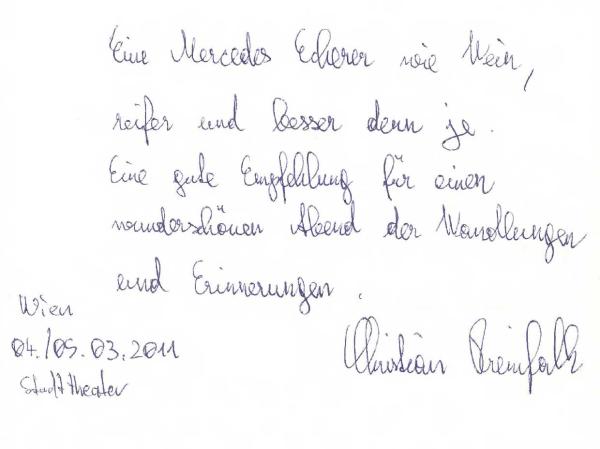 Eine Mercedes Echerer wie Wein,
reifer und besser denn je.
Eine gute Empfehlung für einen
wunderschönen Abend der Wandlungen
und Erinnerungen.
Wien
04./05.03.2011
Stadttheater
Christian